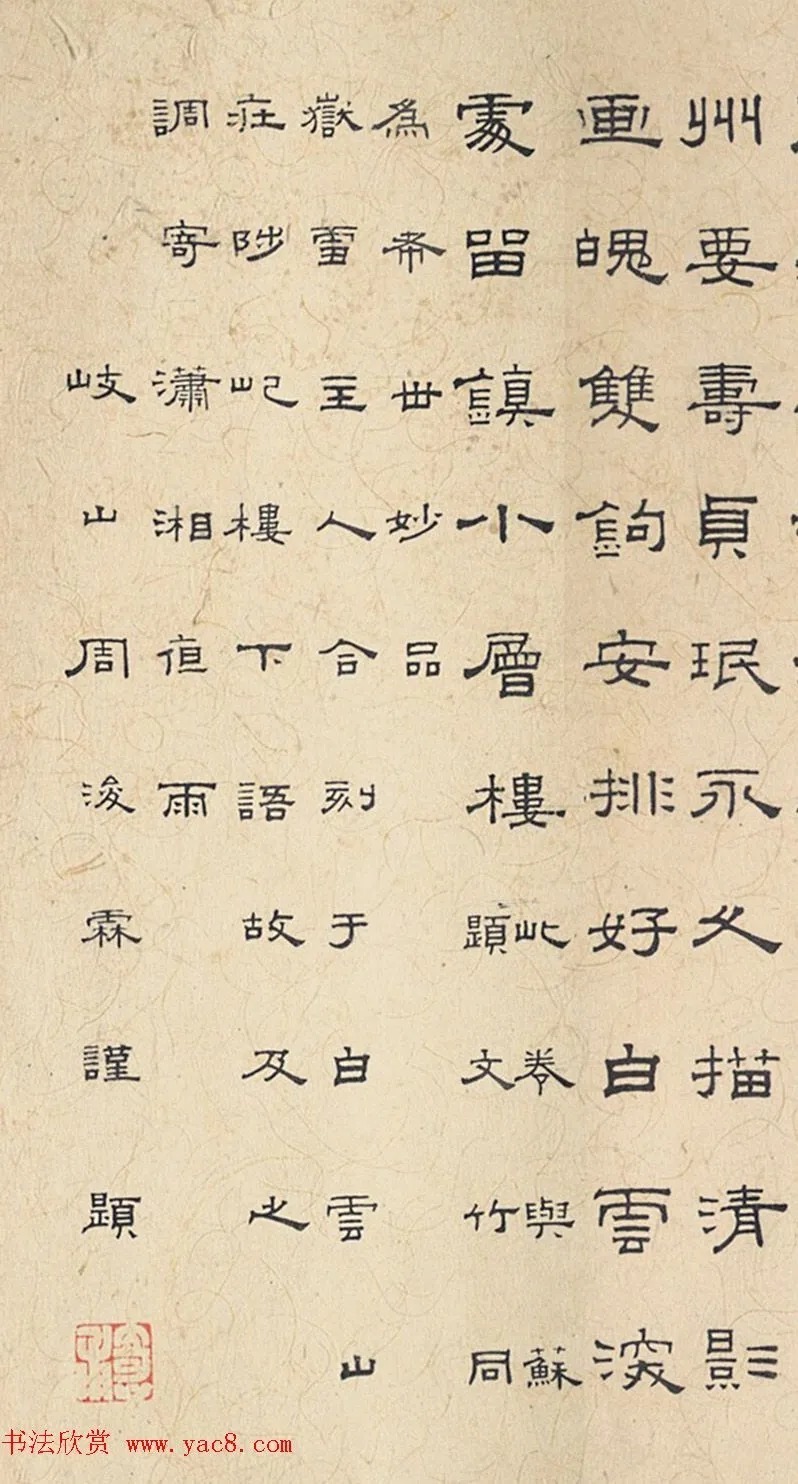 州要壽貞珉永久描清影
画魄雙鉤安排好白雲深
處留鎮小層樓此卷與蘇
題文竹同
為希世妙品
嶽雪主人合刻于白雲山
莊陟屺樓下語故及之
調寄瀟湘夜雨
岐山周浚霖謹題
书法欣赏 www.yac8.com